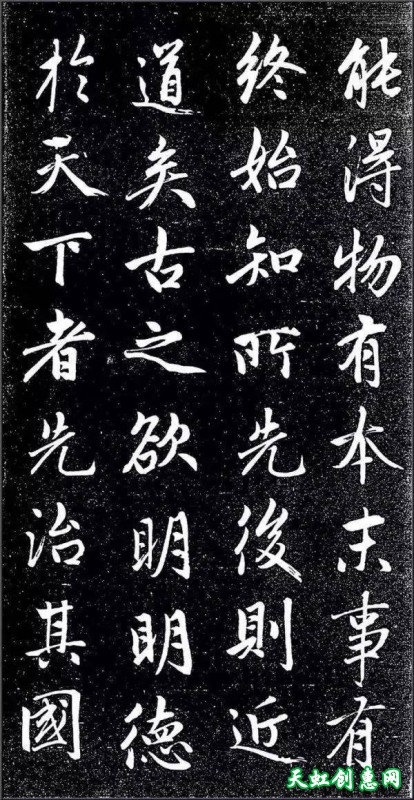 能得物有本末事有
終始知所先後則近
道矣古之欲明明德
於天下者先治其國
天虹创惠网